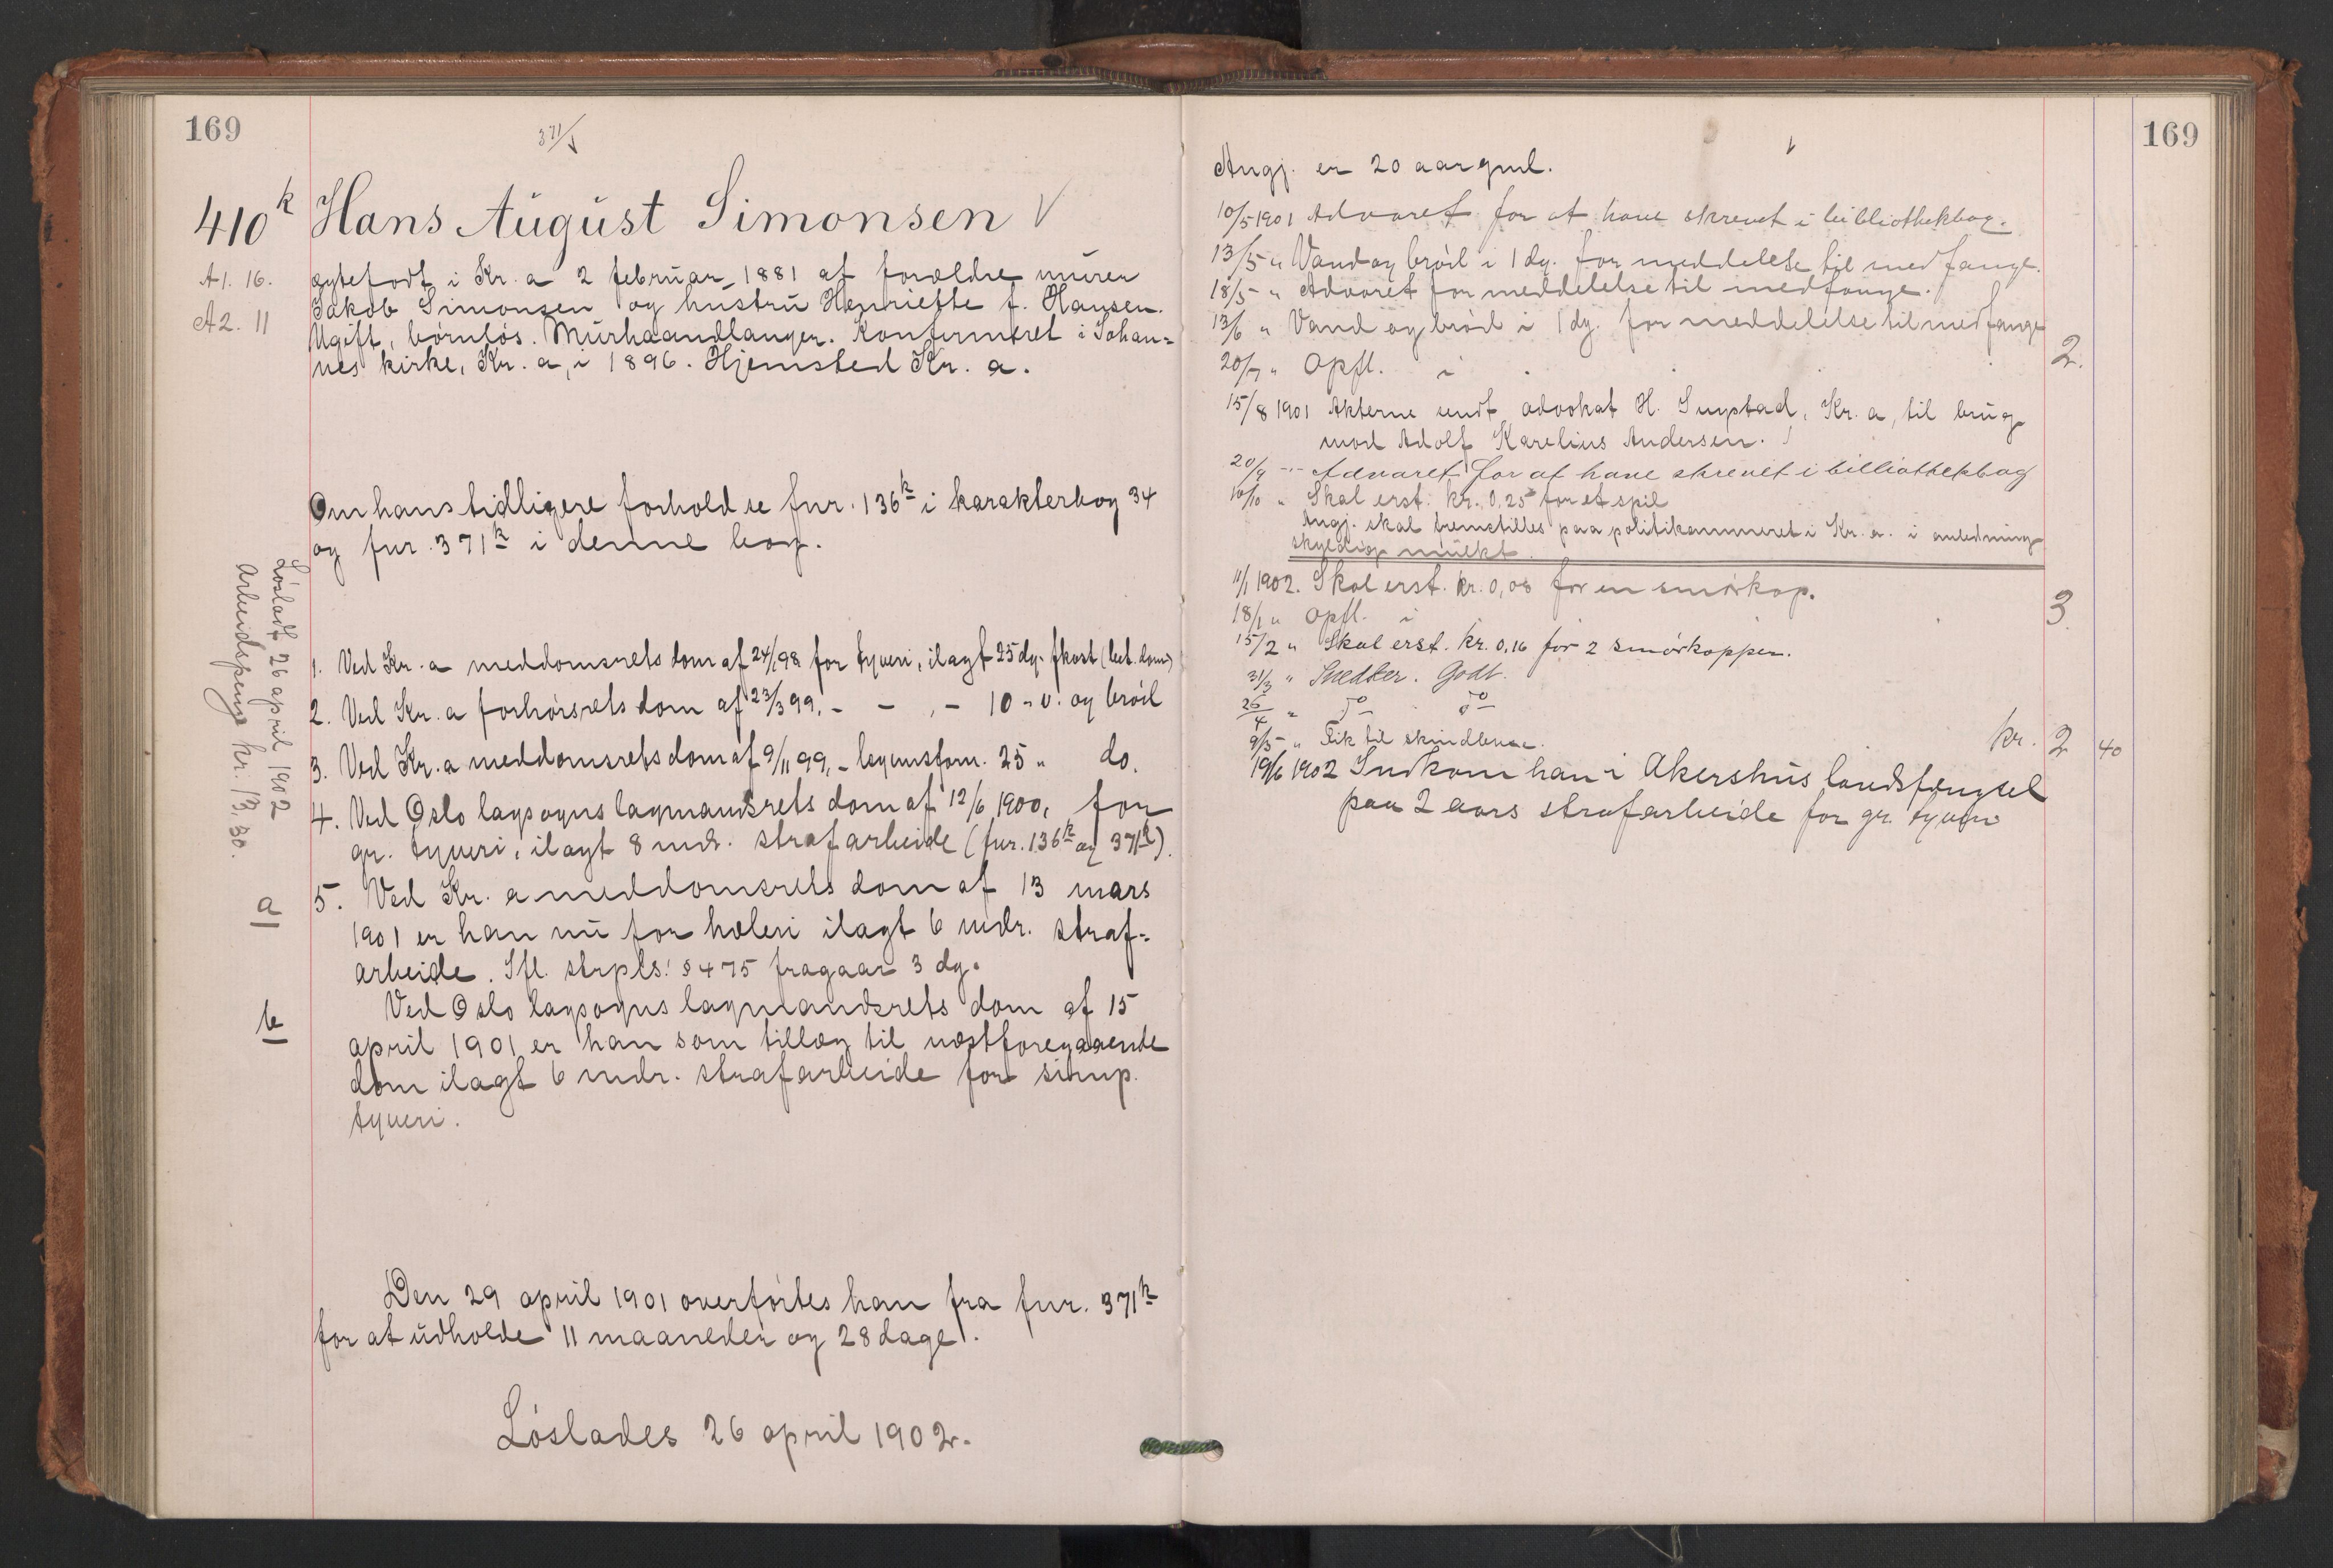 169
371/
410k Hans August Simonsen
A1. 16.
A2. 11
ægtefødt i Kr. a 2 februar 1881 af forældre murer
Jakob Simonsen og hustru Henriette f. Hansen.
Ugift, børnløs. Murhaandlanger. Konfirmeret i Johan=
nes kirke, Kr. a, i 1896. Hjemsted Kr. a.
Om hans tidligere forhold se fnr. 136k i karakterbog 34
og fnr. 371k i denne bog.
Løsladt 26 april 1902
Arbeidspenge kr. 13,30.
1. Ved Kr. a meddomsrets dom af 24/1 98 for tyveri, ilagt 25 dg. fkost (bet. dom)
2. Ved Kr. a forhørsrets dom af 23/3 99, - - , - 10 - v. og brød
3. Ved Kr. a meddomsrets dom af 9/11 99, - legemsforn. 25 " do.
4. Ved Oslo lagsogns lagmandsrets dom af 12/6 1900, for
gr. tyveri, ilagt 8 mdr. strafarbeide (fnr. 136k og 371k).
a
5. Ved Kr. a meddomsrets dom af 13 mars
1901 er han nu for hæleri ilagt 6 mdr. straf=
arbeide. Ifl. strpls: § 475 fragaar 3 dg.
b
Ved Oslo lagsogns lagmandsrets dom af 15
april 1901 er han som tillæg til næstforegaaende
dom ilagt 6 mdr. strafarbeide for simp.
tyveri.
Den 29 april 1901 overførtes han fra fnr. 371k
for at udholde 11 maaneder og 28 dage.
Løslades 26 april 1902.
169
Angj. er 20 aar gml.
10/5 1901 Advaret for at have skrevet i bibliothekbog.
13/5 " Vand og brød i 1 dg. for meddelelse til medfange.
18/5 " Advaret for meddelelse til medfange.
13/6 " Vand og brød i 1 dg. for meddelelse til medfange
20/7 " Opfl. i 2.
15/8 1901 Akterne sendt advokat H. , Kr. a, til brug
mod Adolf Karelius Andersen.
20/9 -"- Advaret for at have skrevet i billiothekbog
10/10 " Skal erst. kr. 0,25 for et spil
Angj. skal fremstilles paa politikammeret i Kr. a. i anledning
skyldig mulkt.
11/1 1902. Skal erst. kr. 0,08 for en smørkop.
18/1 " Opfl. i 3.
15/2 " Skal erst. kr. 0,16 for 2 smørkopper.
31/3 " Snedker. Godt.
26/4 " do do
9/5 " Fik til skindbuxe. kr. 2 40
19/6 1902 Indkom han i Akershus landsfængsel
paa 2 aars strafarbeide for gr. tyveri